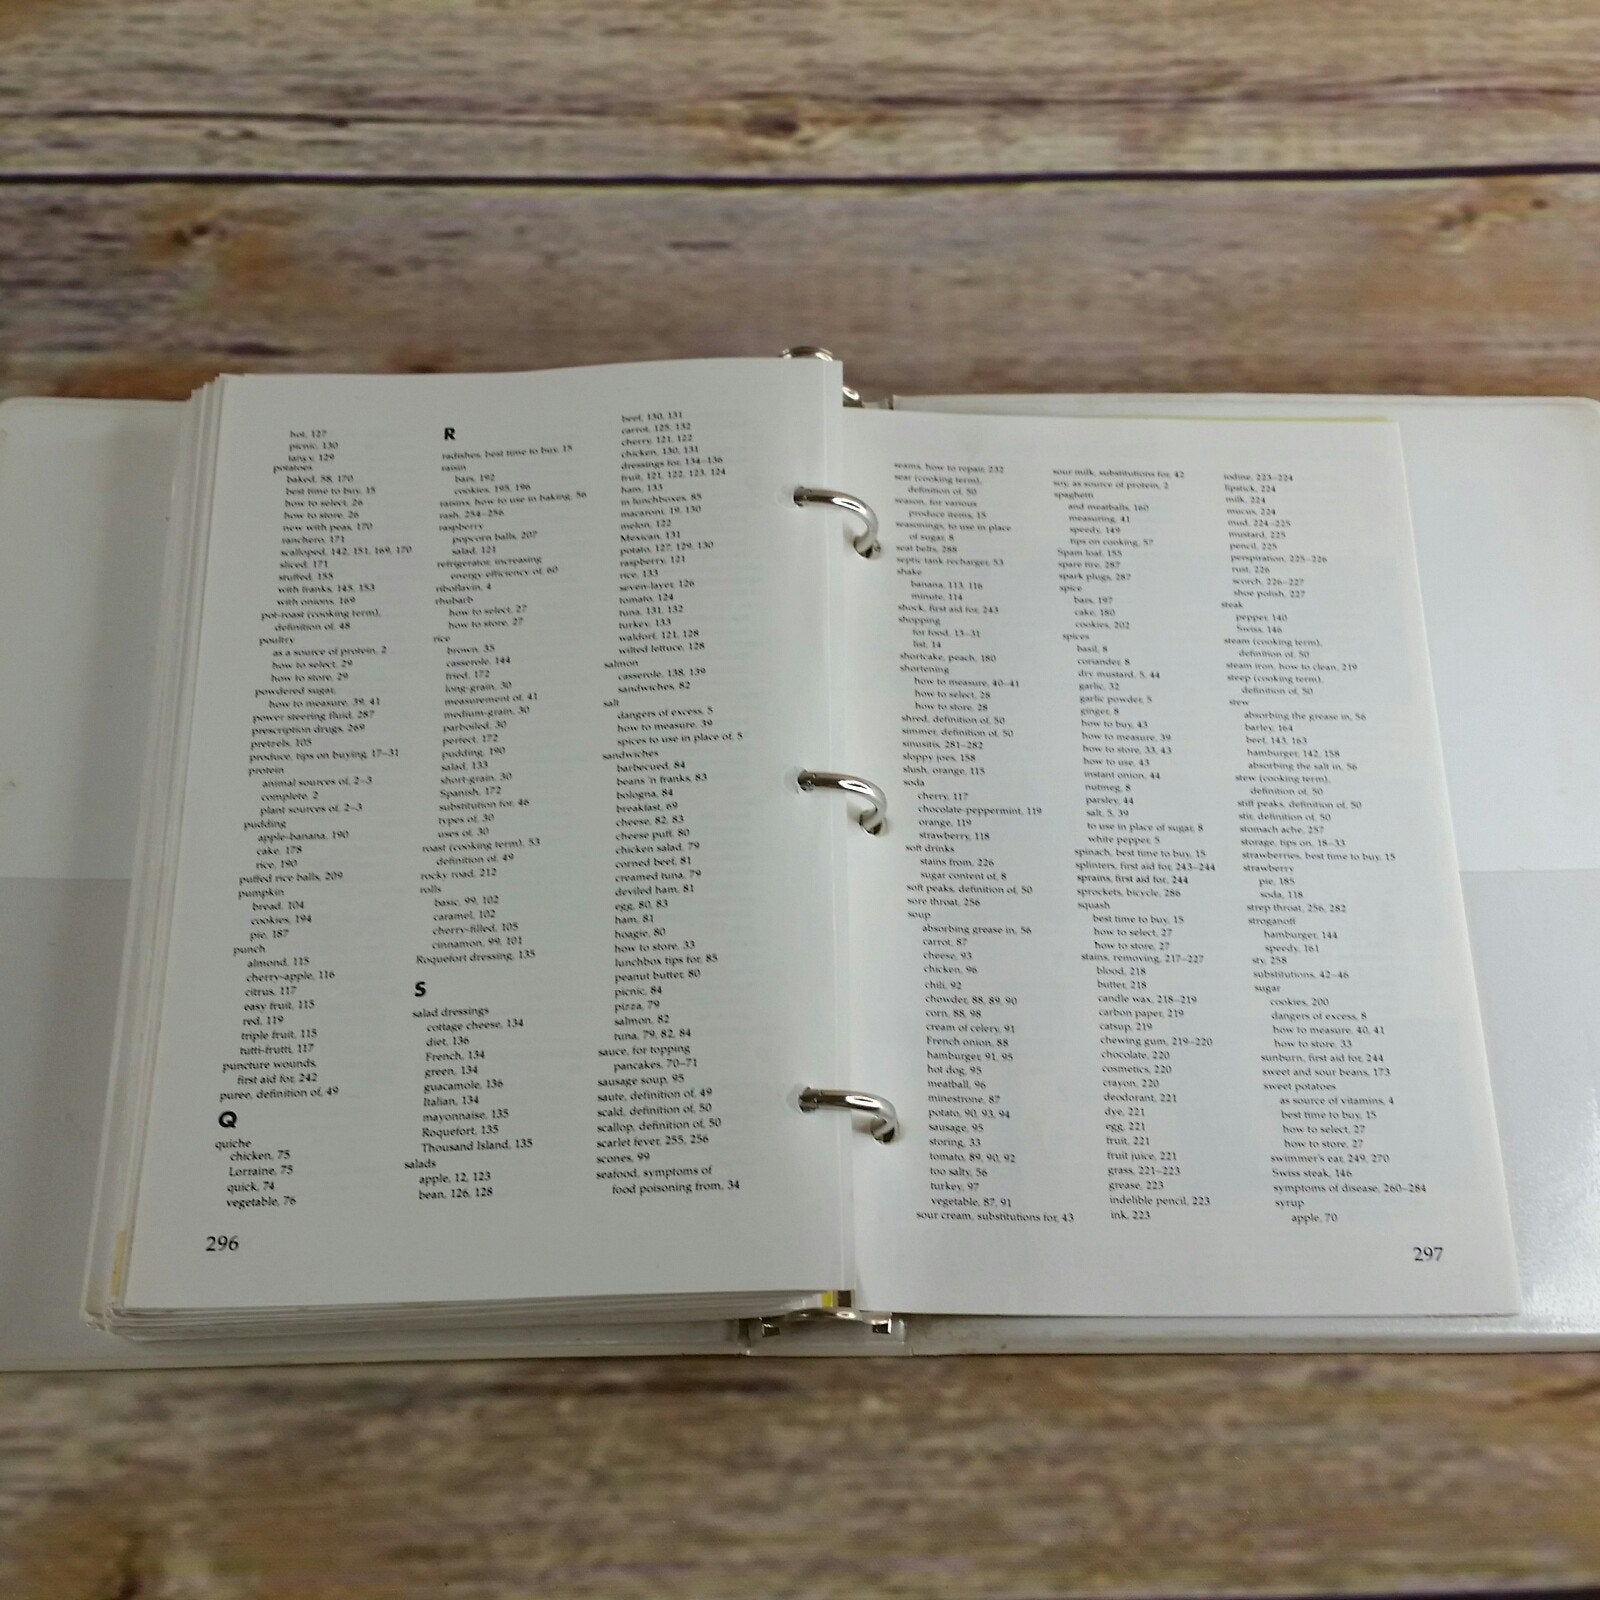 hot, 127
picnic, 130
tangy, 129
potatoes
baked, 58, 170
best time to buy, 15
how to select, 26
how to store, 26
new with peas, 170
ranchero, 171
scalloped, 142, 151, 169, 170
sliced, 171
stuffed, 155
with franks, 145, 153
with onions, 169
pot-roast (cooking term),
definition of, 48
poultry
as a source of protein, 2
how to select, 29
how to store, 29
powdered sugar,
how to measure, 39, 41
power steering fluid, 287
prescription drugs, 269
pretzels, 105
produce, tips on buying, 17–31
protein
animal sources of, 2–3
complete, 2
plant sources of, 2–3
pudding
apple-banana, 190
cake, 178
rice, 190
puffed rice balls, 209
pumpkin
bread, 104
cookies, 194
pie, 187
punch
almond, 115
cherry-apple, 116
citrus, 117
easy fruit, 115
red, 119
triple fruit, 115
tutti-frutti, 117
puncture wounds,
first aid for, 242
puree, definition of, 49
Q
quiche
chicken, 75
Lorraine, 75
quick, 74
vegetable, 76
R
radishes, best time to buy, 15
raisin
bars, 192
cookies, 195, 196
raisins, how to use in baking, 56
rash, 254–256
raspberry
popcorn balls, 207
salad, 121
refrigerator, increasing
energy efficiency of, 60
riboflavin, 4
rhubarb
how to select, 27
how to store, 27
rice
brown, 35
casserole, 144
fried, 172
long-grain, 30
measurement of, 41
medium-grain, 30
parboiled, 30
perfect, 172
pudding, 190
salad, 133
short-grain, 30
Spanish, 172
substitution for, 46
types of, 30
uses of, 30
roast (cooking term), 53
definition of, 49
rocky road, 212
rolls
basic, 99, 102
caramel, 102
cherry-filled, 105
cinnamon, 99, 101
Roquefort dressing, 135
S
salad dressings
cottage cheese, 134
diet, 136
French, 134
green, 134
guacamole, 136
Italian, 134
mayonnaise, 135
Roquefort, 135
Thousand Island, 135
salads
apple, 12, 123
bean, 126, 128
beef, 130, 131
carrot, 125, 132
cherry, 121, 122
chicken, 130, 131
dressings for, 134–136
fruit, 121, 122, 123, 124
ham, 133
in lunchboxes, 85
macaroni, 19, 130
melon, 122
Mexican, 131
potato, 127, 129, 130
raspberry, 121
rice, 133
seven-layer, 126
tomato, 124
tuna, 131, 132
turkey, 133
waldorf, 121, 128
wilted lettuce, 128
salmon
casserole, 138, 139
sandwiches, 82
salt
dangers of excess, 5
how to measure, 39
spices to use in place of, 5
sandwiches
barbecued, 84
beans 'n franks, 83
bologna, 84
breakfast, 69
cheese, 82, 83
cheese puff, 80
chicken salad, 79
corned beef, 81
creamed tuna, 79
deviled ham, 81
egg, 80, 83
ham, 81
hoagie, 80
how to store, 33
lunchbox tips for, 85
peanut butter, 80
picnic, 84
pizza, 79
salmon, 82
tuna, 79, 82, 84
sauce, for topping
pancakes, 70–71
sausage soup, 95
saute, definition of, 49
scald, definition of, 50
scallop, definition of, 50
scarlet fever, 255, 256
scones, 99
seafood, symptoms of
food poisoning from, 34
296
seams, how to repair, 232
sear (cooking term),
definition of, 50
season, for various
produce items, 15
seasonings, to use in place
of sugar, 8
seat belts, 288
septic tank recharger, 53
shake
banana, 113, 116
minute, 114
shock, first aid for, 243
shopping
for food, 13–31
list, 14
shortcake, peach, 180
shortening
how to measure, 40–41
how to select, 28
how to store, 28
shred, definition of, 50
simmer, definition of, 50
sinusitis, 281–282
sloppy joes, 158
slush, orange, 115
soda
cherry, 117
chocolate-peppermint, 119
orange, 119
strawberry, 118
soft drinks
stains from, 226
sugar content of, 8
soft peaks, definition of, 50
sore throat, 256
soup
absorbing grease in, 56
carrot, 87
cheese, 93
chicken, 96
chili, 92
chowder, 88, 89, 90
corn, 88, 98
cream of celery, 91
French onion, 88
hamburger, 91, 95
hot dog, 95
meatball, 96
minestrone, 87
potato, 90, 93, 94
sausage, 95
storing, 33
tomato, 89, 90, 92
too salty, 56
turkey, 97
vegetable, 87, 91
sour cream, substitutions for, 43
sour milk, substitutions for, 42
soy, as source of protein, 2
spaghetti
and meatballs, 160
measuring, 41
speedy, 149
tips on cooking, 57
Spam loaf, 155
spare tire, 287
spark plugs, 287
spice
bars, 197
cake, 180
cookies, 202
spices
basil, 8
coriander, 8
dry mustard, 5, 44
garlic, 32
garlic powder, 5
ginger, 8
how to buy, 43
how to measure, 39
how to store, 33, 43
how to use, 43
instant onion, 44
nutmeg, 8
parsley, 44
salt, 5, 39
to use in place of sugar, 8
white pepper, 5
spinach, best time to buy, 15
splinters, first aid for, 243–244
sprains, first aid for, 244
sprockets, bicycle, 286
squash
best time to buy, 15
how to select, 27
how to store, 27
stains, removing, 217–227
blood, 218
butter, 218
candle wax, 218–219
carbon paper, 219
catsup, 219
chewing gum, 219–220
chocolate, 220
cosmetics, 220
crayon, 220
deodorant, 221
dye, 221
egg, 221
fruit, 221
fruit juice, 221
grass, 221–223
grease, 223
indelible pencil, 223
ink, 223
iodine, 223–224
lipstick, 224
milk, 224
mucus, 224
mud, 224–225
mustard, 225
pencil, 225
perspiration, 225–226
rust, 226
scorch, 226–227
shoe polish, 227
steak
pepper, 140
Swiss, 146
steam (cooking term),
definition of, 50
steam iron, how to clean, 219
steep (cooking term),
definition of, 50
stew
absorbing the grease in, 56
barley, 164
beef, 143, 163
hamburger, 142, 158
absorbing the salt in, 56
stew (cooking term),
definition of, 50
stiff peaks, definition of, 50
stir, definition of, 50
stomach ache, 257
storage, tips on, 18–33
strawberries, best time to buy, 15
strawberry
pie, 185
soda, 118
strep throat, 256, 282
stroganoff
hamburger, 144
speedy, 161
sty, 258
substitutions, 42–46
sugar
cookies, 200
dangers of excess, 8
how to measure, 40, 41
how to store, 33
sunburn, first aid for, 244
sweet and sour beans, 173
sweet potatoes
as source of vitamins, 4
best time to buy, 15
how to select, 27
how to store, 27
swimmer's ear, 249, 270
Swiss steak, 146
symptoms of disease, 260–284
syrup
apple, 70
297